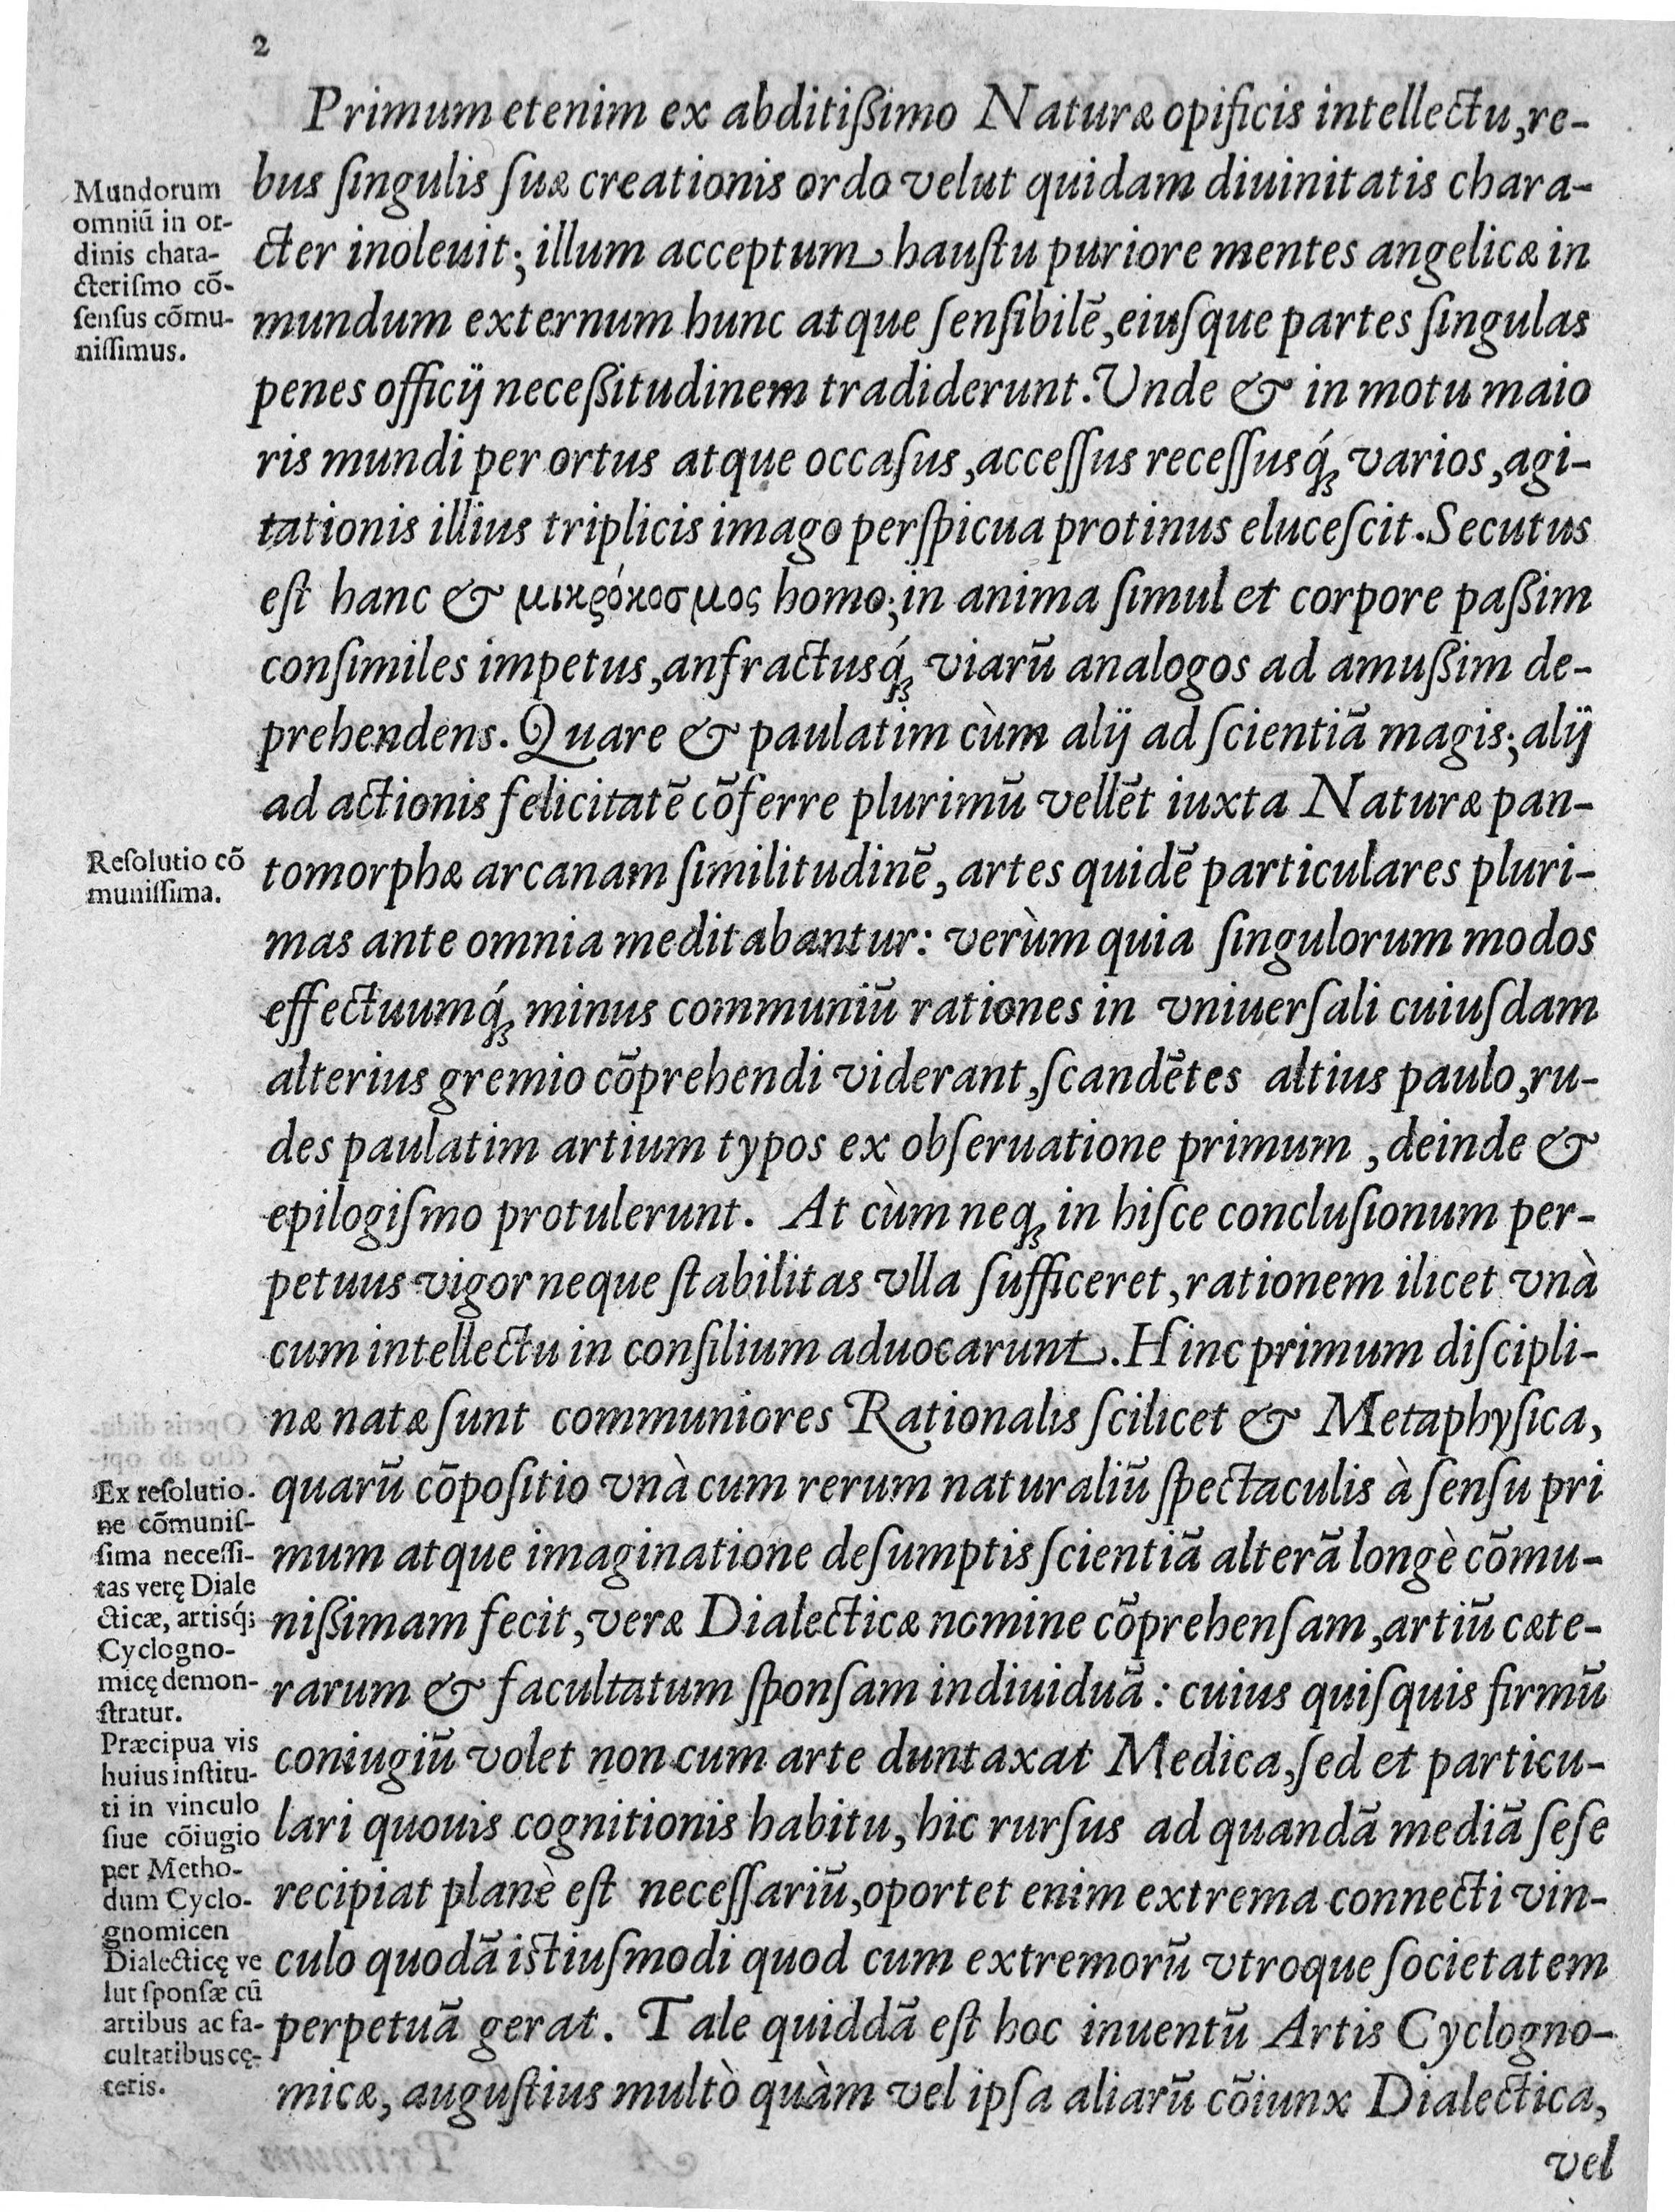 2
Primum etenim ex abditißimo Naturæ opificis intellectu, re-
bus ſingulis ſuæ creationis ordo velut quidam diuinitatis chara-
cter inoleuit; illum acceptum hauſtu puriore mentes angelicæ in
mundum externum hunc atque ſenſibilē, eiuſque partes ſingulas
penes officij neceßitudinem tradiderunt. Unde & in motu maio
ris mundi per ortus atque occaſus, acceſſus receſſusq́; varios, agi-
tationis illius triplicis imago perſpicua protinus eluceſcit. Secutus
eſt hanc & μικρόκοσμος homo; in anima ſimul et corpore paßim
conſimiles impetus, anfractusq́; viarū analogos ad amußim de-
prehendens. Quare & paulatim cùm alij ad ſcientiā magis; alij
ad actionis felicitatē cōferre plurimū vellēt iuxta Naturæ pan-
tomorphæ arcanam ſimilitudinē, artes quidē particulares pluri-
mas ante omnia meditabantur: verùm quia ſingulorum modos
effectuumq́; minus communiū rationes in vniuerſali cuiuſdam
alterius gremio cōprehendi viderant, ſcandētes altius paulo, ru-
des paulatim artium typos ex obſeruatione primum, deinde &
epilogiſmo protulerunt. At cùm neq; in hiſce concluſionum per-
petuus vigor neque ſtabilitas vlla ſufficeret, rationem ilicet vnà
cum intellectu in conſilium aduocarunt. Hinc primum diſcipli-
næ natæ ſunt communiores Rationalis ſcilicet & Metaphyſica,
quarū cōpoſitio vnà cum rerum naturaliū ſpectaculis à ſenſu pri
mum atque imaginatione deſumptis ſcientiā alterā longè cōmu-
nißimam fecit, veræ Dialecticæ nomine cōprehenſam, artiū cæte-
rarum & facultatum ſponſam indiuiduā: cuius quiſquis firmū
coniugiū volet non cum arte duntaxat Medica, ſed et particu-
lari quouis cognitionis habitu, hic rurſus ad quandā mediā ſeſe
recipiat planè eſt neceſſariū, oportet enim extrema connecti vin-
culo quodā iſtiuſmodi quod cum extremorū vtroque ſocietatem
perpetuā gerat. Tale quiddā eſt hoc inuentū Artis Cyclogno-
micæ, auguſtius multò quàm vel ipſa aliarū cōiunx Dialectica,
vel
Mundorum
omniū in or-
dinis chara-
cteriſmo cō-
ſenſus cōmu-
niſſimus.
Reſolutio cō
muniſſima.
Ex reſolutio-
ne cōmuniſ-
ſima neceſſi-
tas verę Diale
cticæ, artisq́;
Cyclogno-
micę demon-
ſtratur.
Præcipua vis
huius inſtitu-
ti in vinculo
ſiue cōiugio
per Metho-
dum Cyclo-
gnomicen
Dialecticę ve
lut ſponſæ cū
artibus ac fa-
cultatibus cę-
teris.